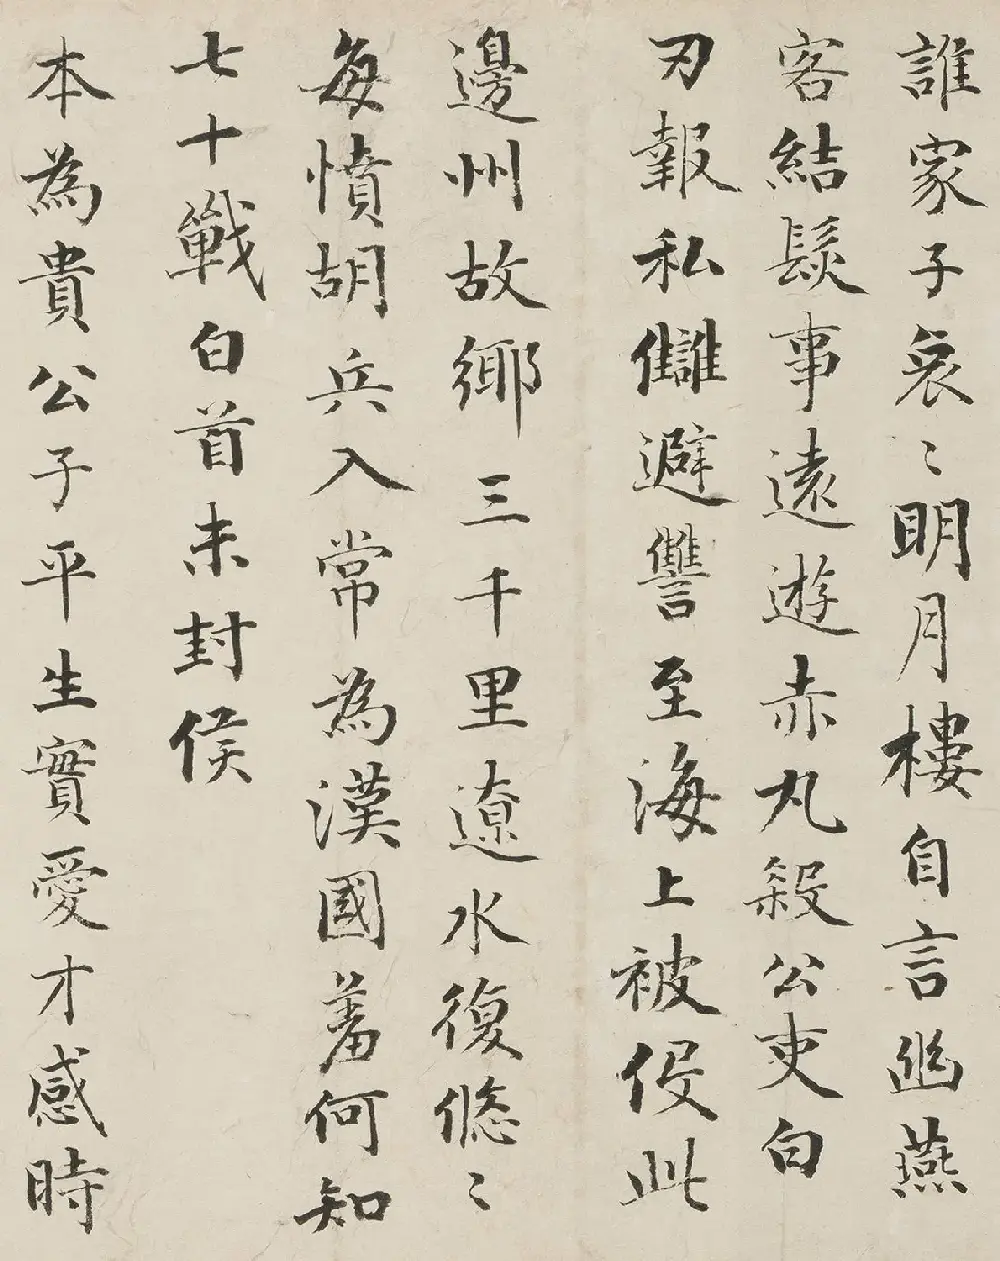 誰家子哀〻明月樓自言幽燕
客結髮事遠遊赤丸殺公吏白
刃報私讎避讐至海上被役此
邊州故鄉三千里遼水復悠〻
每憤胡兵入常為漢國羞何知
七十戰白首未封侯
本為貴公子平生實愛才感時